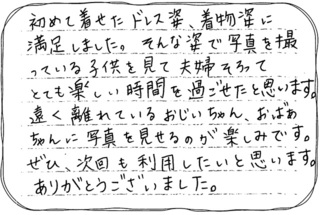 初めて着せたドレス姿、着物姿に
満足しました。そんな姿で写真を撮
っている子供を見て夫婦そろって
とても楽しい時間を過ごせたと思います。
遠く離れているおじいちゃん、おばあ
ちゃんに写真を見せるのが楽しみです。
ぜひ、次回も利用したいと思います。
ありがとうございました。